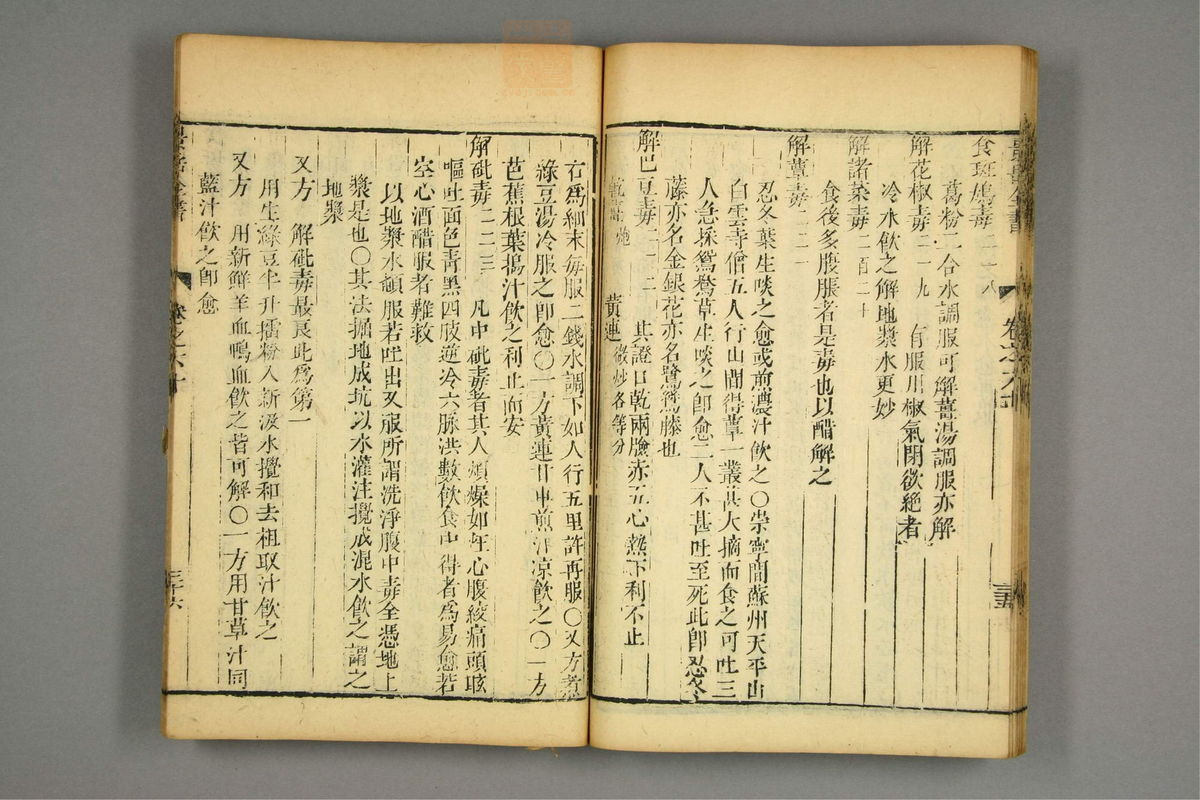 景岳全書 卷之六十 三五
食斑鳩毒二一八
葛粉二合水調服可解薑湯調服亦解
解花椒毒二一九 有服川椒氣閉欲絕者
冷水飲之解地漿水更妙
解諸菜毒二百二十
食後多腹脹者是毒也以醋解之
解蕈毒二二一
忍冬葉生啖之愈或煎濃汁飲之〇崇寧間蘇州天平山
白雲寺僧五人行山間得蕈一叢甚大摘而食之可吐三
人急採鴛鴦草生啖之卽愈二人不甚吐至死此卽忍冬
藤亦名金銀花亦名鷺鷥藤也
解巴豆毒二二二 其證口乾兩臉赤五心熱下利不止
黃連 微炒各等分
右爲細末每服二錢水調下如人行五里許再服〇又方煮
綠豆湯冷服之卽愈〇一方黃連甘草煎汁凉飲之〇一方
芭蕉根葉搗汁飲之利止而安
解砒毒二二三 凡中砒毒者其人煩燥如狂心腹絞痛頭眩
嘔吐面色青黑四肢逆冷六脉洪數飲食中得者爲易愈若
空心酒醋服者難救
以地漿水頓服若吐出又服所謂洗淨腹中毒全憑地上
漿是也〇其法掘地成坑以水灌注攪成混水飲之謂之
地漿
又方 解砒毒最良此爲第一
用生綠豆半升擂粉入新汲水攪和去柤取汁飲之
又方 用新鮮羊血鴨血飲之皆可解〇一方用甘草汁同
藍汁飲之卽愈
景岳全書 卷之六十 三十六